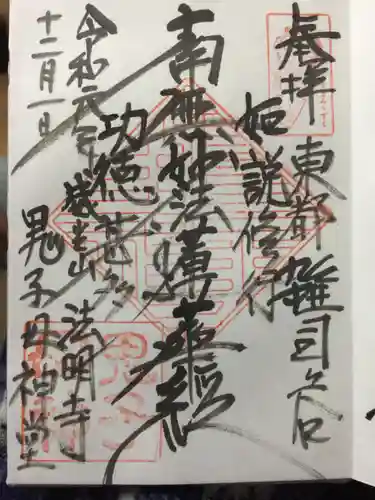 奉拝
東都 雑司ヶ谷
如説修行
南無妙法蓮華経
功徳甚多
威光山 法明寺
鬼子母神堂
令和元年
十二月一日